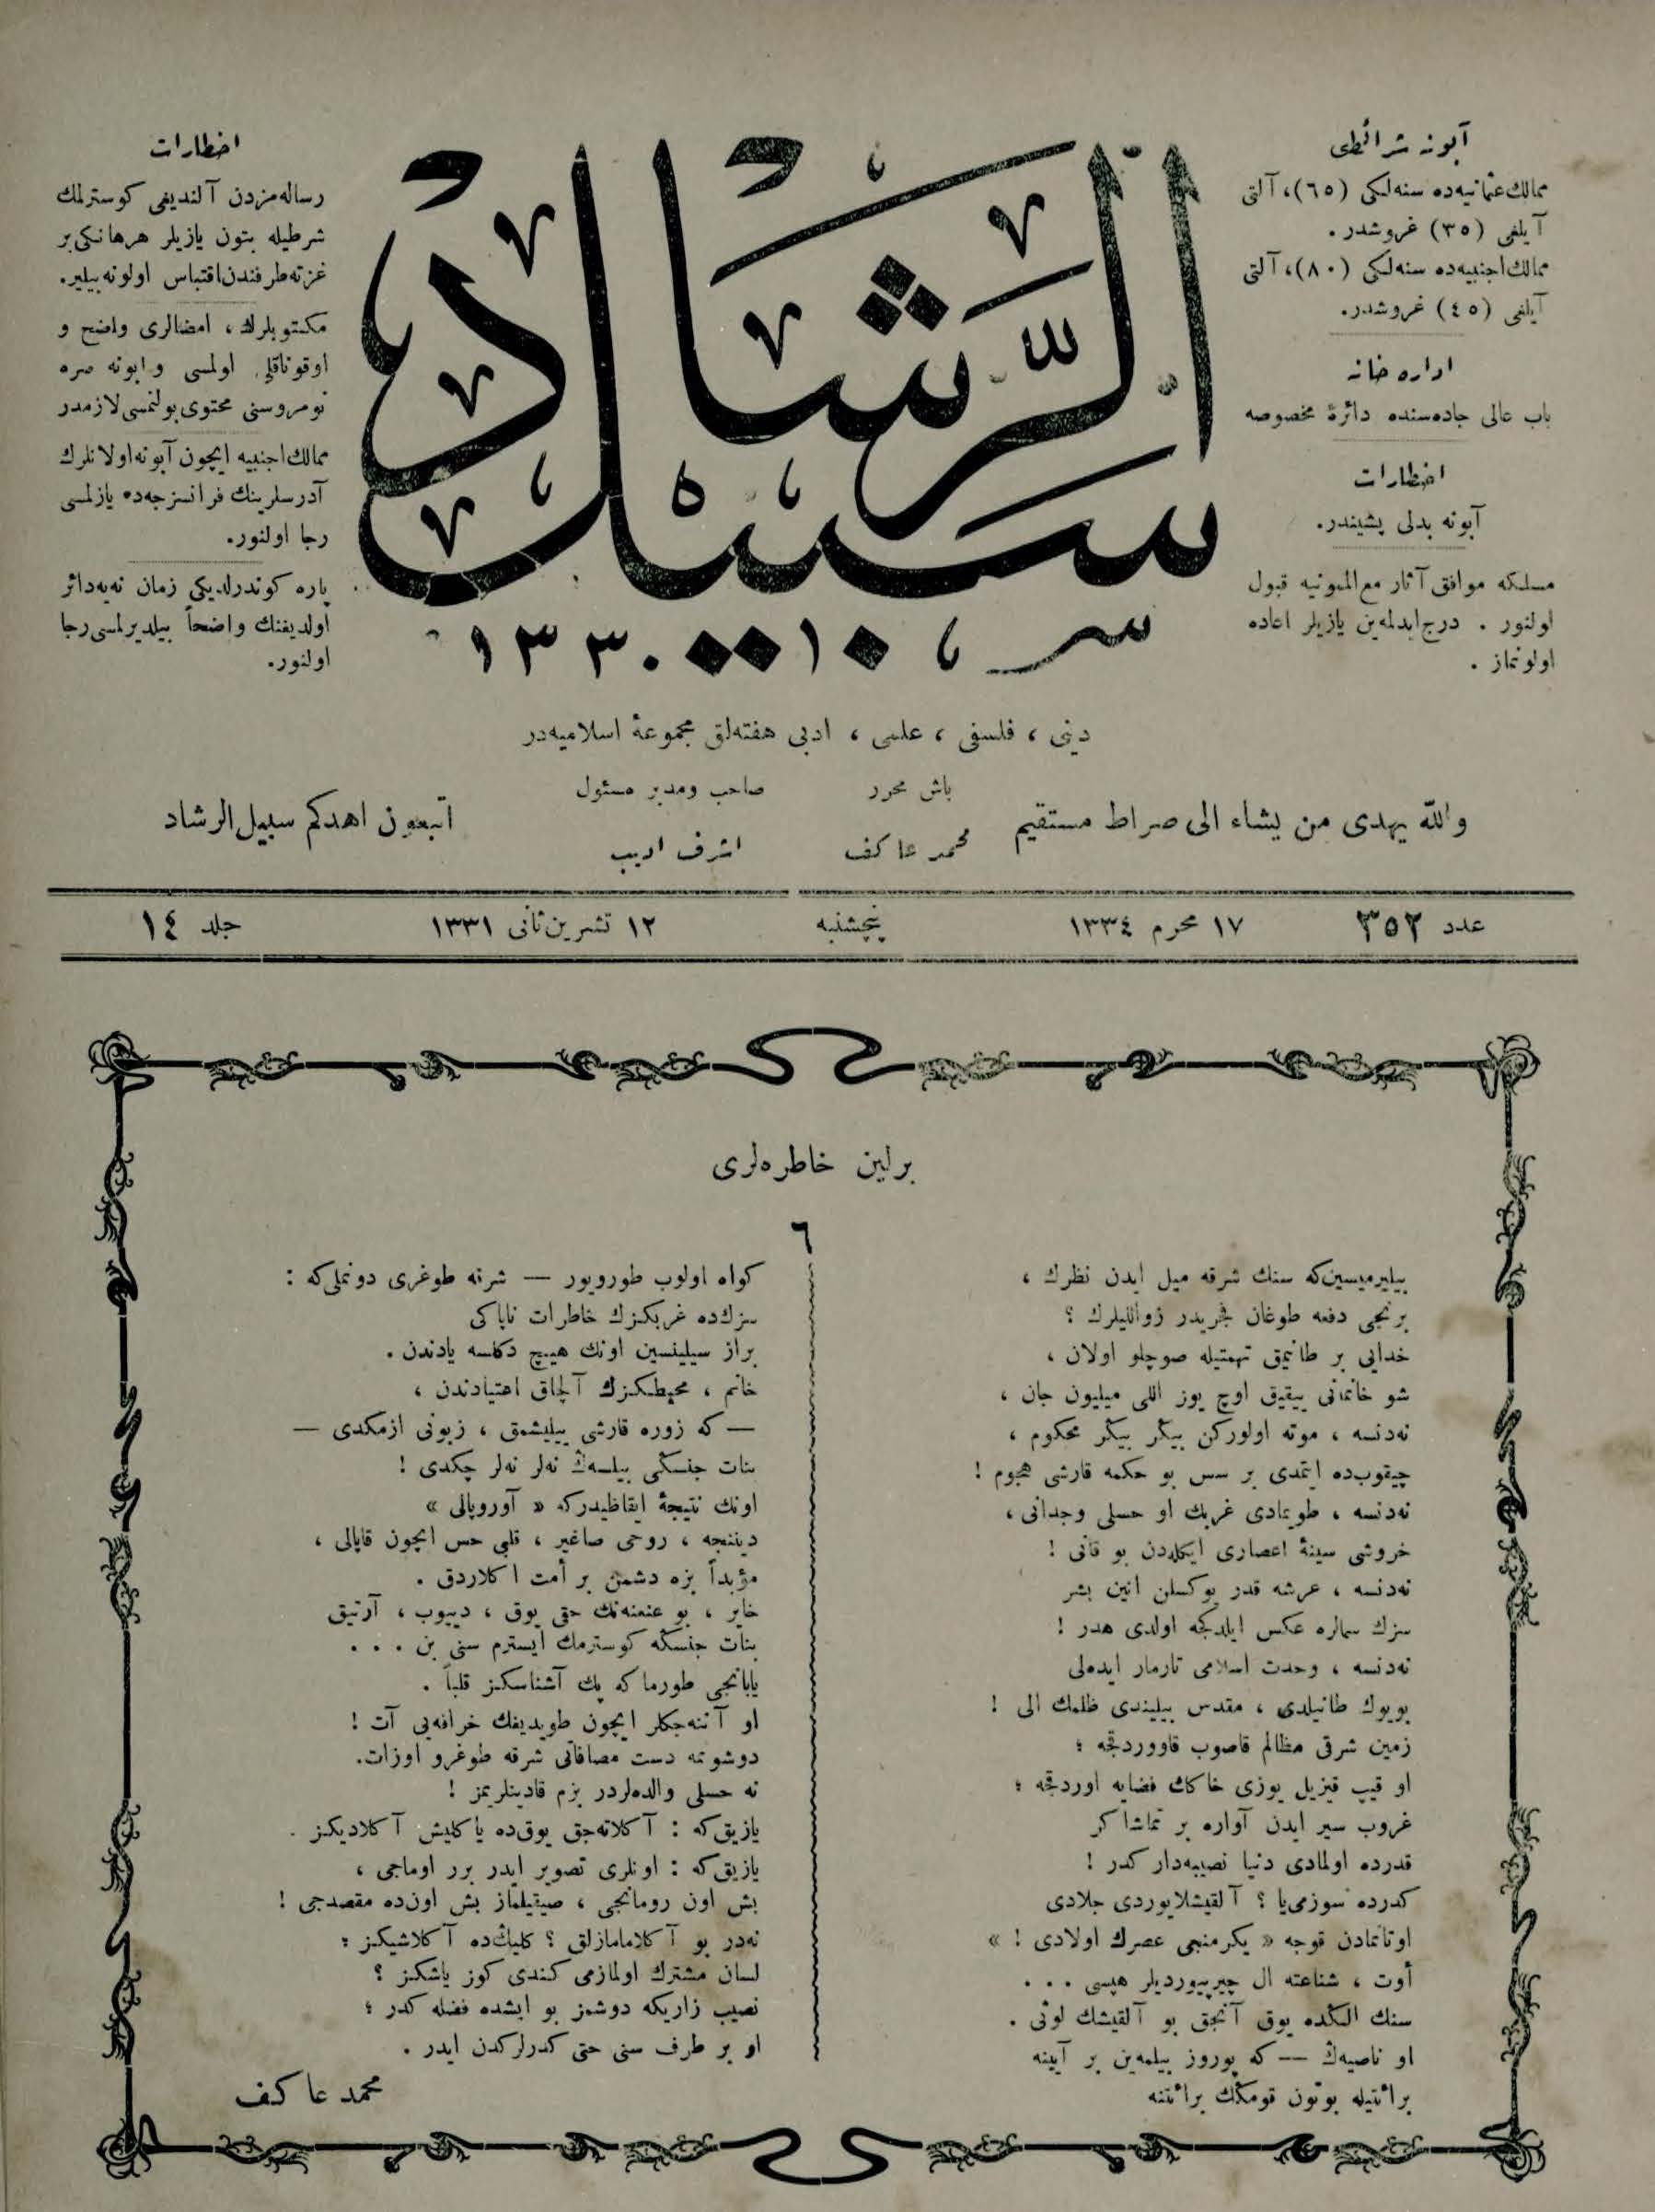 آبونه شرائطی
ممالك عثمانیه‌ده سنه‌لكی (٦٥)، آلتی
آیلغی (٣٥) غروشدر.
ممالك اجنبیه‌ده سنه‌لكی (٨٠)، آلتی
آیلغی (٤٥) غروشدر.
اداره خانه
باب عالی جاده‌سنده دائرهٔ مخصوصه
اخطارات
آبونه بدلی پشیندر.
مسلكه موافق آثار مع‌الممنونیه قبول
اولنور . درج ایدلمه‌ین یازیلر اعاده
اولونماز .
سبیل الرشاد
١٣٣٠
اخطارات
رساله‌مزدن آلندیغی كوسترلمك
شرطیله بتون یازیلر هرهانكی بر
غزته طرفندن اقتباس اولونه‌بیلیر.
مكتوبلرك ، امضالری واضح و
اوقوناقلی اولمسی و ابونه صره
نومروسنی محتوی بولنمسی لازمدر
ممالك اجنبیه ایچون آبونه اولانلرك
آدرسلرینك فرانسزجه‌ده یازلمسی
رجا اولنور.
پاره كوندرلدیكی زمان نه‌یه‌دائر
اولدیغنك واضحاً بیلدیرلمسی رجا
اولنور.
دینی ، فلسفی ، علمی ، ادبی هفته‌لق مجموعهٔ اسلامیه‌در
باش محرر
محمد عاكف
صاحب ومدیر مسئول
اشرف ادیب
والله یهدی من یشاء الی صراط مستقیم
اتبعون اهدكم سبیل الرشاد
عدد ٣٥٢
١٧ محرم ١٣٣٤
پنجشنبه
١٢ تشرین ثانی ١٣٣١
جلد ١٤
برلین خاطره‌لری
٦
بیلیرمیسین‌كه سنك شرقه میل ایدن نظرك ،
برنجی دفعه طوغان فجریدر زواللیلرك ؟
خدایی بر طانیمق تهمتیله صوچلو اولان ،
شو خانمانی ییقیق اوچ یوز اللی میلیون جان ،
نه‌دنسه ، موته اولوركن بیكر بیكر محكوم ،
چیقوب‌ده ایتمدی بر سس بو حكمه قارشی هجوم !
نه‌دنسه ، طویمادی غربك او حسلی وجدانی ،
خروشی سینهٔ اعصاری ایكله‌دن بو قانی !
نه‌دنسه ، عرشه قدر یوكسلن انین بشر
سزك سمالره عكس ایلدكجه اولدی هدر !
نه‌دنسه ، وحدت اسلامی تارمار ایده‌لی
بویوك طانیلدی ، مقدس بیلیندی ظلمك الی !
زمین شرقی مظالم قاصوب قاووردقجه ؛
او قیپ قیزیل یوزی خاكك فضایه اوردقجه ؛
غروب سیر ایدن آواره بر تماشا كر
قدرده اولمادی دنیا نصیبه‌دار كدر !
كدرده سوزمی‌یا ؟ آلقیشلایوردی جلادی
اوتانمادن قوجه « یكرمنجی عصرك اولادی ! »
أوت ، شناعته ال چیرپیوردیلر هپسی . . .
سنك الكده یوق آنجق بو آلقیشك لوثی .
او ناصیه‌ك — كه یوروز بیلمه‌ین بر آیینه
برائتیله بوتون قومكك برائتنه
كواه اولوب طورویور — شرقه طوغری دونملی‌كه :
سزك‌ده غربكزك خاطرات ناپاكی
براز سیلینسین اونك هیچ دكلسه یادندن .
خانم ، محیطكزك آلچاق اعتیادندن ،
— كه زوره قارشی ییلیشمق ، زبونی ازمكدی —
بنات جنسكی بیلسه‌ك نه‌لر نه‌لر چكدی !
اونك نتیجهٔ ایقاظیدركه « آوروپالی »
دیننجه ، روحی صاغیر ، قلبی حس ایچون قاپالی ،
مؤبداً بزه دشمن بر أمت اكلاردق .
خایر ، بو عنعنه‌نك حقی یوق ، دییوب ، آرتیق
بنات جنسكه كوسترمك ایسترم سنی بن . . .
یابانجی طورما كه پك آشناسكز قلباً .
او آننه‌جكلر ایچون طویدیغك خرافه‌یی آت !
دوشونمه دست مصافاتی شرقه طوغرو اوزات.
نه حسلی والده‌لردر بزم قادینلریمز !
یازیق‌كه : آكلاته‌جق یوق‌ده یاكلیش آكلادیكز .
یازیق‌كه : اونلری تصویر ایدر برر اوماجی ،
بش اون رومانجی ، صیقیلماز بش اون‌ده مقصدجی !
نه‌در بو آكلامامازلق ؟ كلیك‌ده آكلاشیكز ؛
لسان مشترك اولمازمی كندی كوز یاشكز ؟
نصیب زاریكه دوشمز بو ایشده فضله كدر ؛
او بر طرف سنی حتی كدرلركدن ایدر .
محمد عاكف